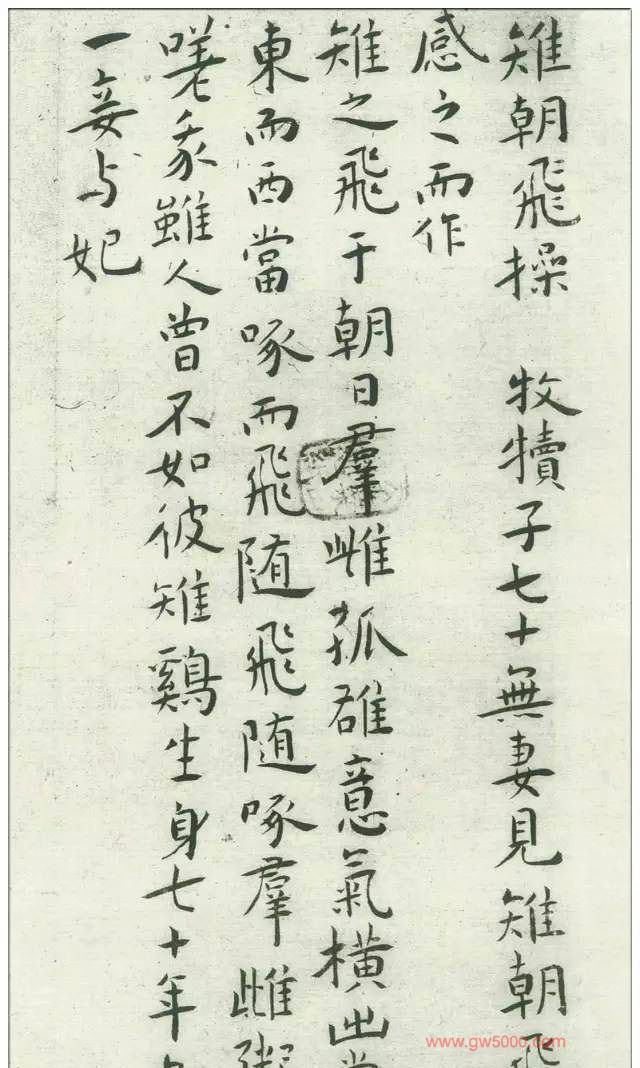 雉朝飛操 牧犢子七十無妻見雉朝飛
感之而作
雉之飛于朝日羣雌孤雄意氣横出
東而西當啄而飛随飛随啄羣雌粥
嗟我雖人曾不如彼雉鷄生身七十年
一妾与妃
www.gw5000.com